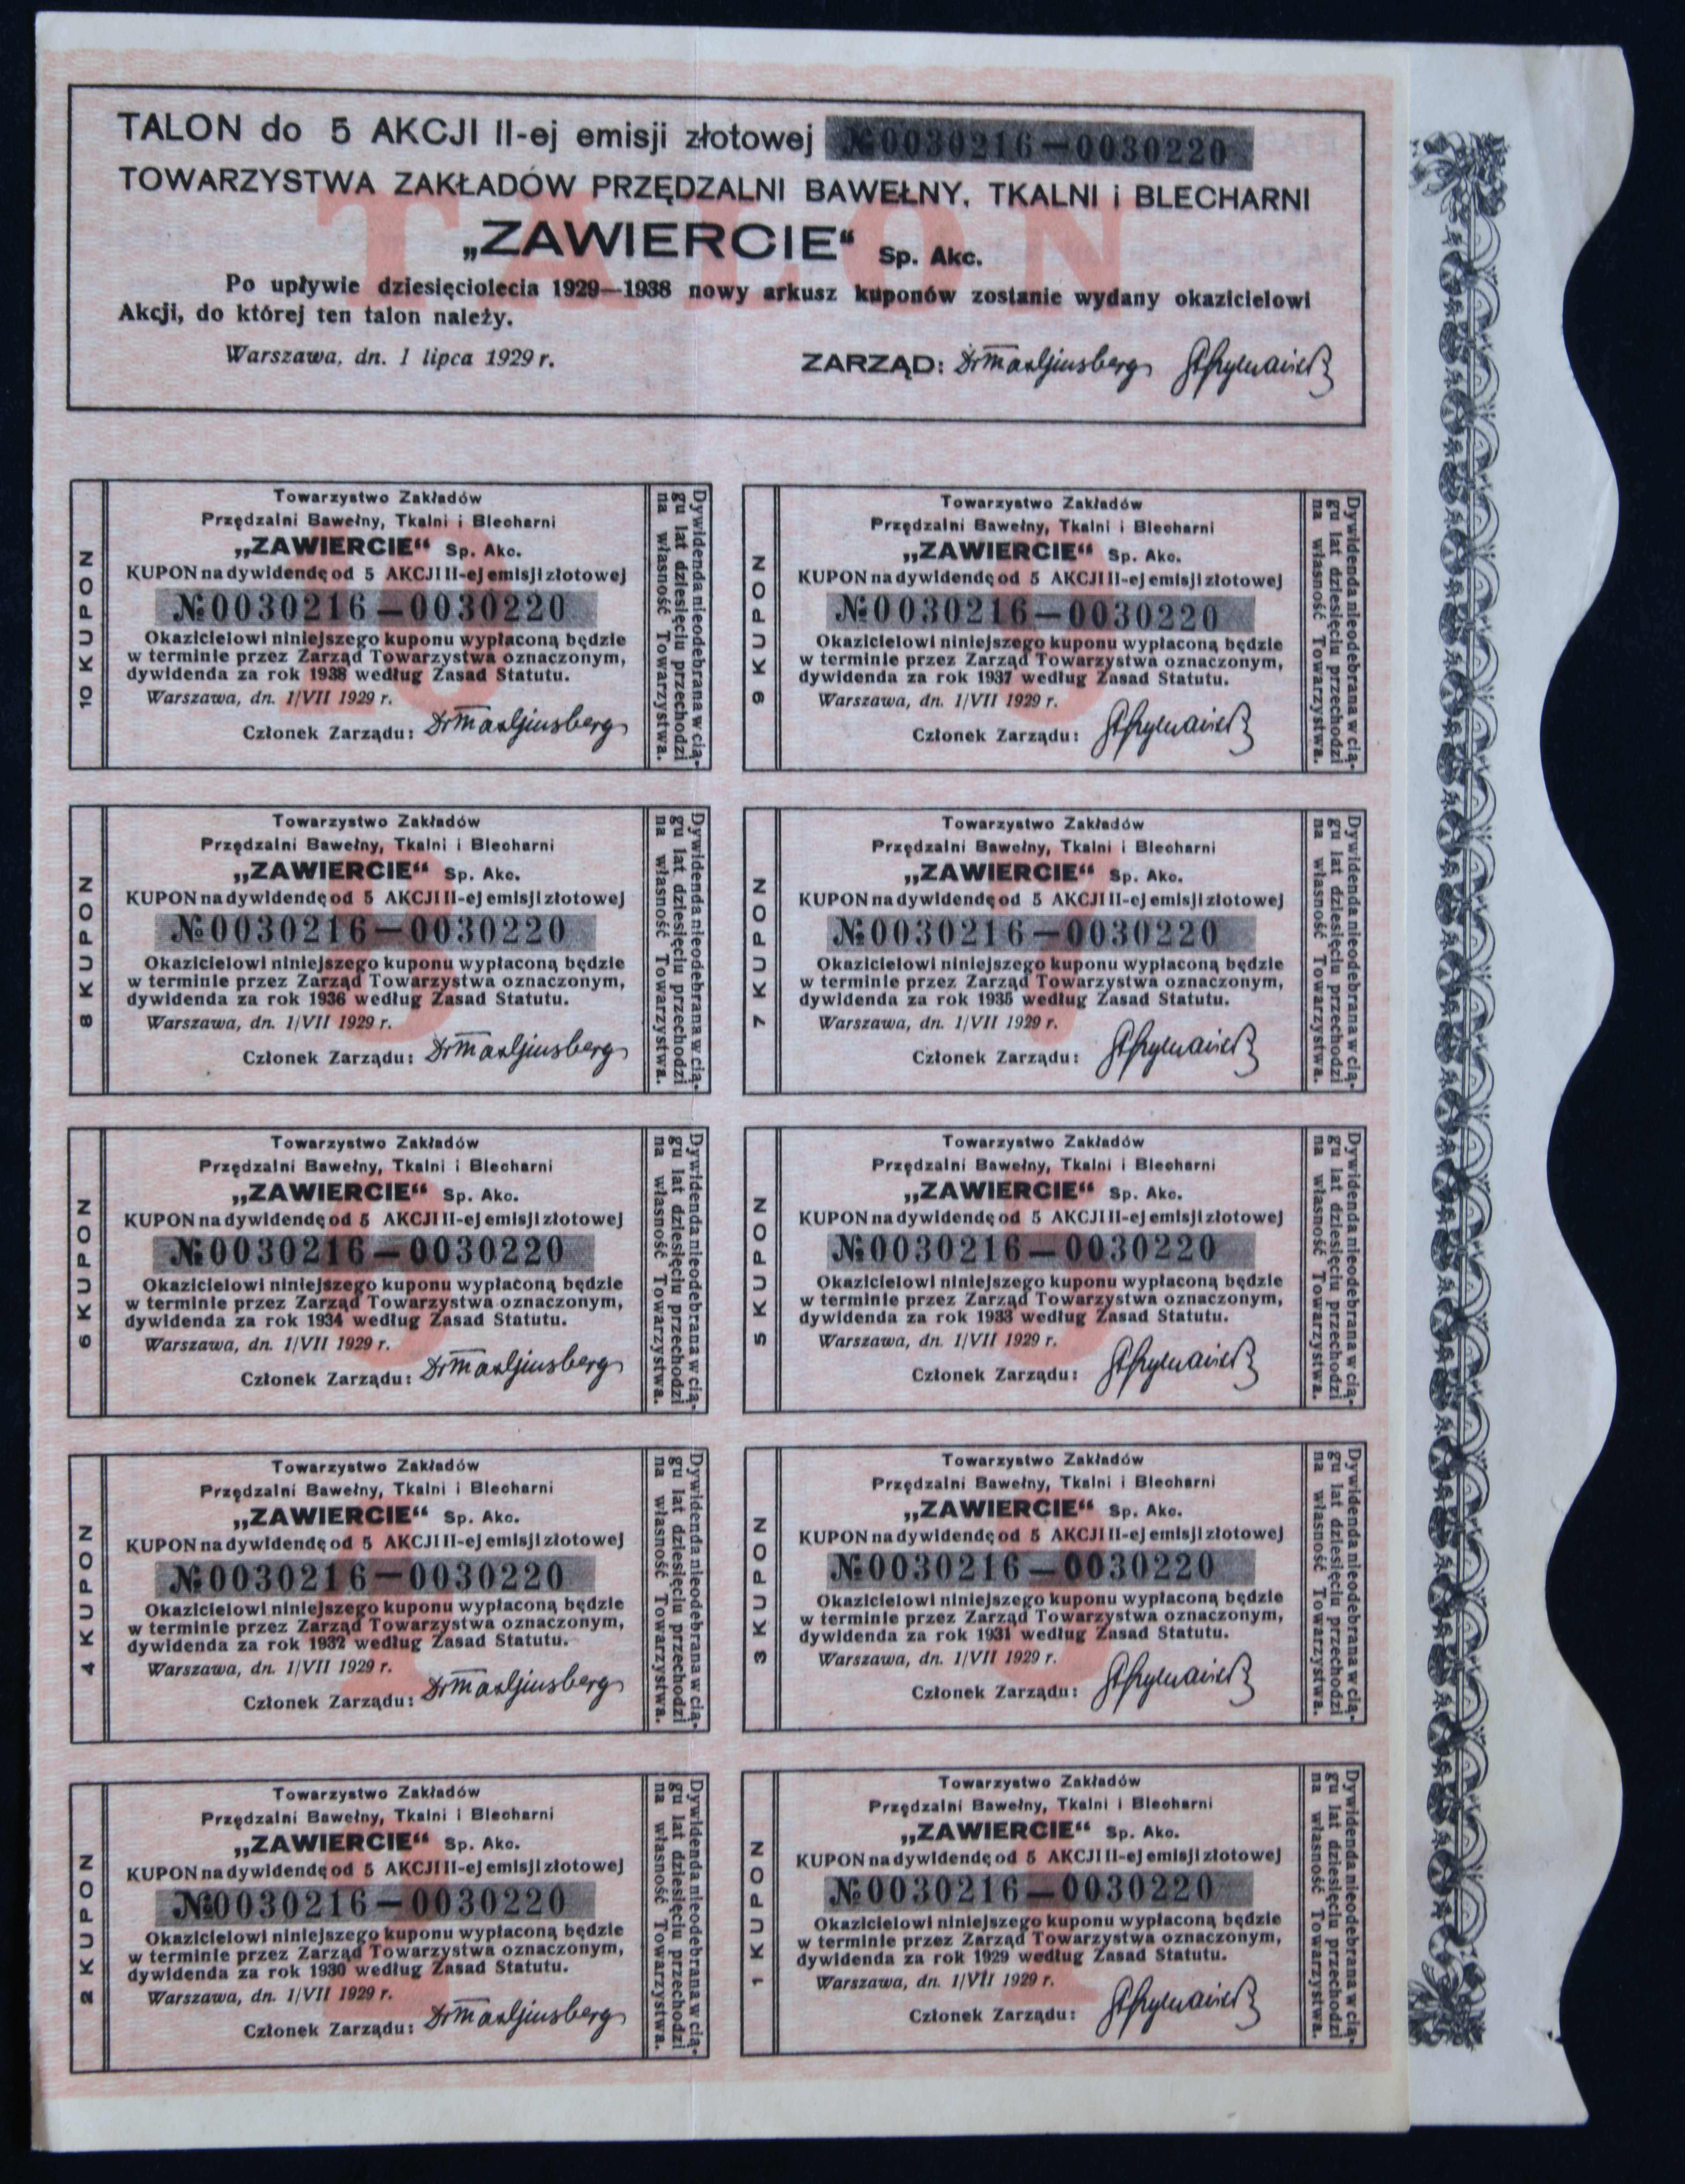 TALON do 5 AKCJI II-ej emisji złotowej № 0030216—0030220
TOWARZYSTWA ZAKŁADÓW PRZĘDZALNI BAWEŁNY, TKALNI i BLECHARNI
„ZAWIERCIE“ Sp. Akc.
TALON
Po upływie dziesięciolecia 1929—1938 nowy arkusz kuponów zostanie wydany okazicielowi
Akcji, do której ten talon należy.
Warszawa, dn. 1 lipca 1929 r.
ZARZĄD:
10 KUPON
Towarzystwo Zakładów
Przędzalni Bawełny, Tkalni i Blecharni
„ZAWIERCIE“ Sp. Akc.
KUPON na dywidendę od 5 AKCJI II-ej emisji złotowej
№ 0030216—0030220
Okazicielowi niniejszego kuponu wypłaconą będzie
w terminie przez Zarząd Towarzystwa oznaczonym,
dywidenda za rok 1938 według Zasad Statutu.
Warszawa, dn. 1/VII 1929 r.
Członek Zarządu:
Dywidenda nieodebrana w cią-
gu lat dziesięciu przechodzi
na własność Towarzystwa.
9 KUPON
Towarzystwo Zakładów
Przędzalni Bawełny, Tkalni i Blecharni
„ZAWIERCIE“ Sp. Akc.
KUPON na dywidendę od 5 AKCJI II-ej emisji złotowej
№ 0030216—0030220
Okazicielowi niniejszego kuponu wypłaconą będzie
w terminie przez Zarząd Towarzystwa oznaczonym,
dywidenda za rok 1937 według Zasad Statutu.
Warszawa, dn. 1/VII 1929 r.
Członek Zarządu:
Dywidenda nieodebrana w cią-
gu lat dziesięciu przechodzi
na własność Towarzystwa.
8 KUPON
Towarzystwo Zakładów
Przędzalni Bawełny, Tkalni i Blecharni
„ZAWIERCIE“ Sp. Akc.
KUPON na dywidendę od 5 AKCJI II-ej emisji złotowej
№ 0030216—0030220
Okazicielowi niniejszego kuponu wypłaconą będzie
w terminie przez Zarząd Towarzystwa oznaczonym,
dywidenda za rok 1936 według Zasad Statutu.
Warszawa, dn. 1/VII 1929 r.
Członek Zarządu:
Dywidenda nieodebrana w cią-
gu lat dziesięciu przechodzi
na własność Towarzystwa.
7 KUPON
Towarzystwo Zakładów
Przędzalni Bawełny, Tkalni i Blecharni
„ZAWIERCIE“ Sp. Akc.
KUPON na dywidendę od 5 AKCJI II-ej emisji złotowej
№ 0030216—0030220
Okazicielowi niniejszego kuponu wypłaconą będzie
w terminie przez Zarząd Towarzystwa oznaczonym,
dywidenda za rok 1935 według Zasad Statutu.
Warszawa, dn. 1/VII 1929 r.
Członek Zarządu:
Dywidenda nieodebrana w cią-
gu lat dziesięciu przechodzi
na własność Towarzystwa.
6 KUPON
Towarzystwo Zakładów
Przędzalni Bawełny, Tkalni i Blecharni
„ZAWIERCIE“ Sp. Akc.
KUPON na dywidendę od 5 AKCJI II-ej emisji złotowej
№ 0030216—0030220
Okazicielowi niniejszego kuponu wypłaconą będzie
w terminie przez Zarząd Towarzystwa oznaczonym,
dywidenda za rok 1934 według Zasad Statutu.
Warszawa, dn. 1/VII 1929 r.
Członek Zarządu:
Dywidenda nieodebrana w cią-
gu lat dziesięciu przechodzi
na własność Towarzystwa.
5 KUPON
Towarzystwo Zakładów
Przędzalni Bawełny, Tkalni i Blecharni
„ZAWIERCIE“ Sp. Akc.
KUPON na dywidendę od 5 AKCJI II-ej emisji złotowej
№ 0030216—0030220
Okazicielowi niniejszego kuponu wypłaconą będzie
w terminie przez Zarząd Towarzystwa oznaczonym,
dywidenda za rok 1933 według Zasad Statutu.
Warszawa, dn. 1/VII 1929 r.
Członek Zarządu:
Dywidenda nieodebrana w cią-
gu lat dziesięciu przechodzi
na własność Towarzystwa.
4 KUPON
Towarzystwo Zakładów
Przędzalni Bawełny, Tkalni i Blecharni
„ZAWIERCIE“ Sp. Akc.
KUPON na dywidendę od 5 AKCJI II-ej emisji złotowej
№ 0030216—0030220
Okazicielowi niniejszego kuponu wypłaconą będzie
w terminie przez Zarząd Towarzystwa oznaczonym,
dywidenda za rok 1932 według Zasad Statutu.
Warszawa, dn. 1/VII 1929 r.
Członek Zarządu:
Dywidenda nieodebrana w cią-
gu lat dziesięciu przechodzi
na własność Towarzystwa.
3 KUPON
Towarzystwo Zakładów
Przędzalni Bawełny, Tkalni i Blecharni
„ZAWIERCIE“ Sp. Akc.
KUPON na dywidendę od 5 AKCJI II-ej emisji złotowej
№ 0030216—0030220
Okazicielowi niniejszego kuponu wypłaconą będzie
w terminie przez Zarząd Towarzystwa oznaczonym,
dywidenda za rok 1931 według Zasad Statutu.
Warszawa, dn. 1/VII 1929 r.
Członek Zarządu:
Dywidenda nieodebrana w cią-
gu lat dziesięciu przechodzi
na własność Towarzystwa.
2 KUPON
Towarzystwo Zakładów
Przędzalni Bawełny, Tkalni i Blecharni
„ZAWIERCIE“ Sp. Akc.
KUPON na dywidendę od 5 AKCJI II-ej emisji złotowej
№ 0030216—0030220
Okazicielowi niniejszego kuponu wypłaconą będzie
w terminie przez Zarząd Towarzystwa oznaczonym,
dywidenda za rok 1930 według Zasad Statutu.
Warszawa, dn. 1/VII 1929 r.
Członek Zarządu:
Dywidenda nieodebrana w cią-
gu lat dziesięciu przechodzi
na własność Towarzystwa.
1 KUPON
Towarzystwo Zakładów
Przędzalni Bawełny, Tkalni i Blecharni
„ZAWIERCIE“ Sp. Akc.
KUPON na dywidendę od 5 AKCJI II-ej emisji złotowej
№ 0030216—0030220
Okazicielowi niniejszego kuponu wypłaconą będzie
w terminie przez Zarząd Towarzystwa oznaczonym,
dywidenda za rok 1929 według Zasad Statutu.
Warszawa, dn. 1/VII 1929 r.
Członek Zarządu:
Dywidenda nieodebrana w cią-
gu lat dziesięciu przechodzi
na własność Towarzystwa.